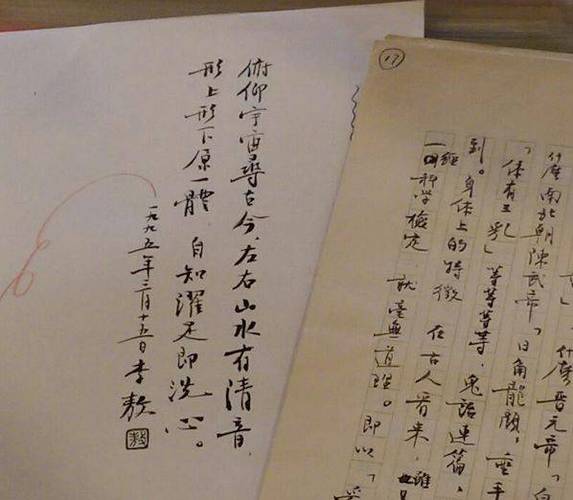 俯仰宇宙尋古今,左右山水有清音,
形上形下原一體,自知濯足即洗心。
一九九五年三月十五日李敖
敖
17
」,什麼晉元帝「白
什麼南北朝陳武帝「日角龍顏,垂手
「体有三乳」等等等等,鬼話連篇,
到。身体上的特徵 在古人看来,雖
一經科学檢定 就毫無道理。即以「